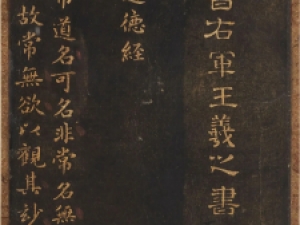 晉右軍王羲之書
道德經
常道名可名非常名無
故常無欲以觀其妙